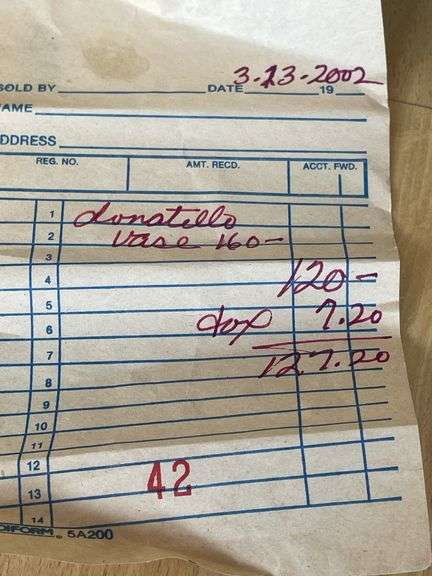 SOLD BY DATE 3.23-2002 19
NAME
ADDRESS
REG. NO. AMT. RECD. ACCT. FWD.
1 donatello
2 vase 160-
3
4 120-
5
6 tax 7.20
7 127.20
8
9
10
11
12
13 42
14
5A200